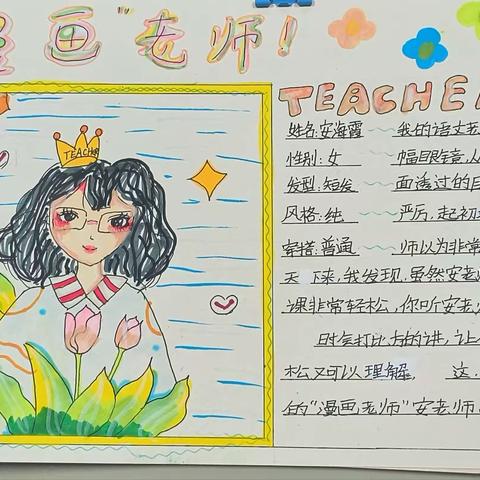 画"老师!
TEACHE
TEACHER
姓名:安海霞 我的语文老
性别:女 幅眼镜,从
发型:短发 面透过的目
风格:纯 严厉,起初
穿搭:普通 师以为非常
天 下来,我发现,虽然安老
课非常轻松,你听安老
时会打比方的讲,让
松又可以理解, 这
的"漫画老师"安老师